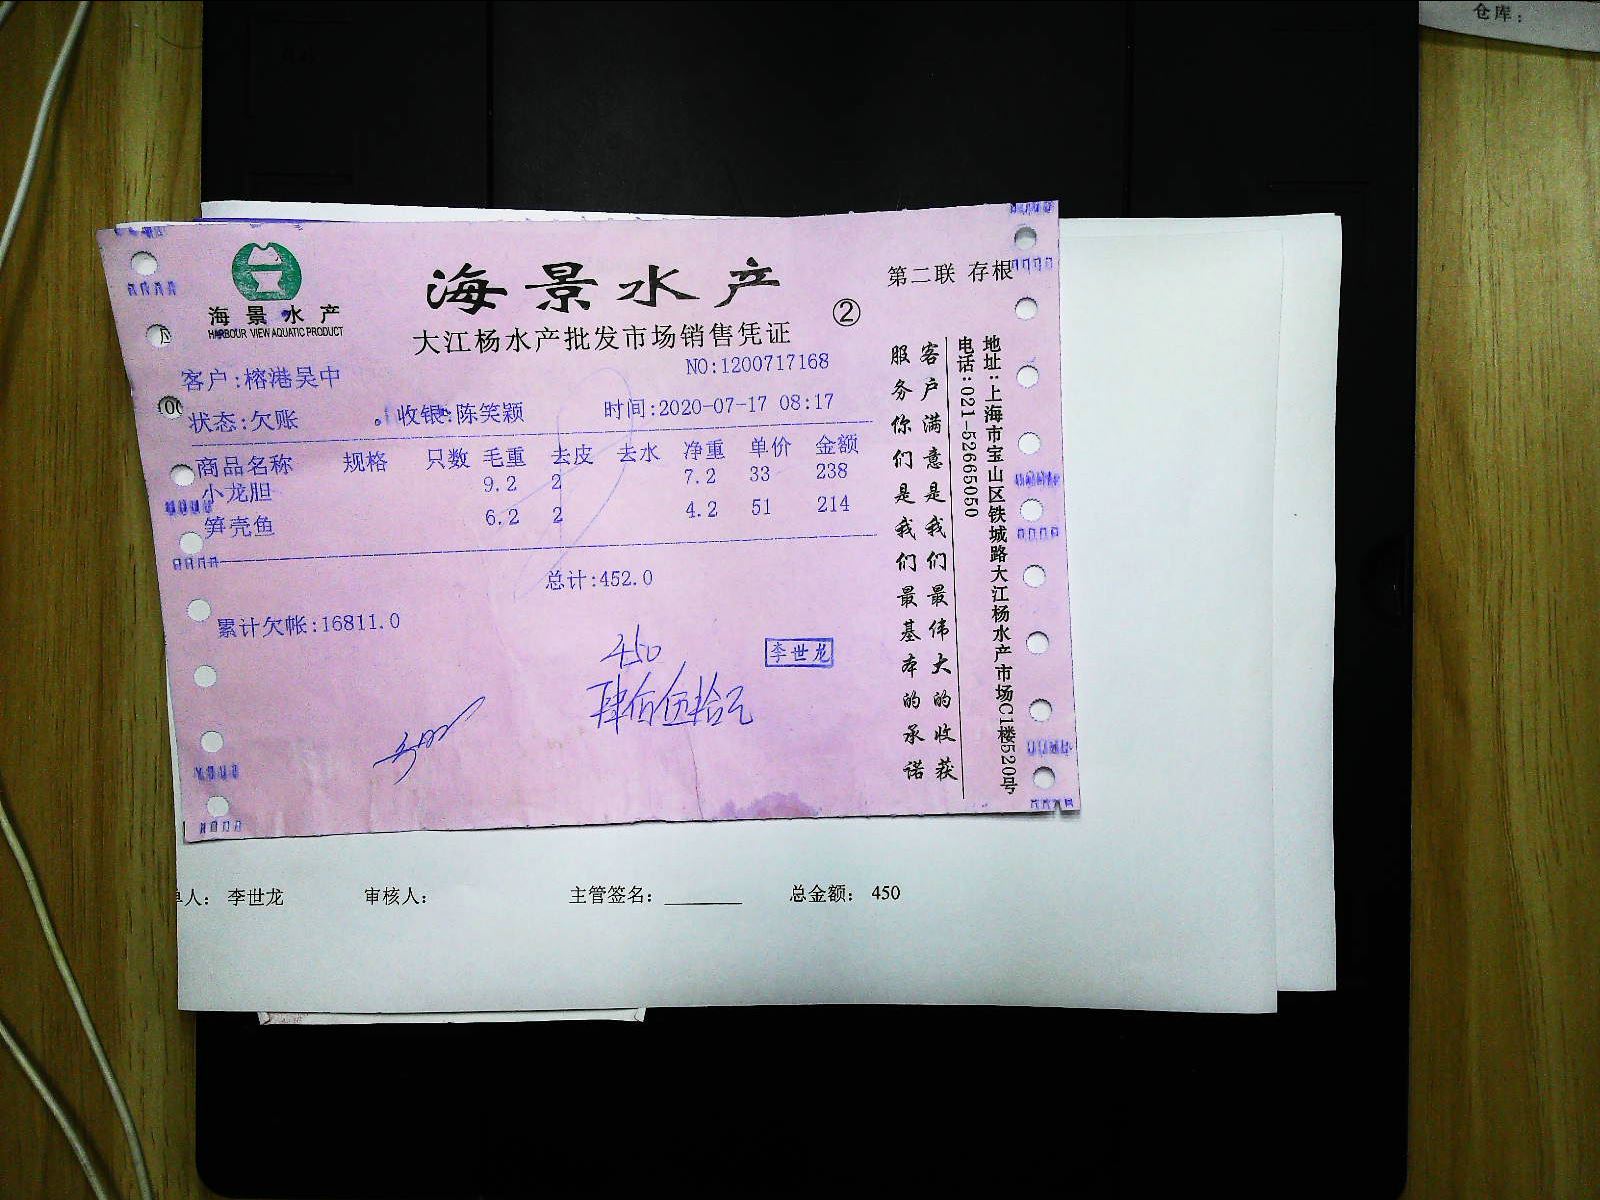 仓库：
海景水产
HARBOUR VIEW AQUATIC PRODUCT
海景水产
大江杨水产批发市场销售凭证
②
第二联 存根
NO:1200717168
客户:榕港吴中
状态:欠账 收银:陈笑颖 时间:2020-07-17 08:17
商品名称 规格 只数 毛重 去皮 去水 净重 单价 金额
小龙胆 9.2 2 7.2 33 238
笋壳鱼 6.2 2 4.2 51 214
总计:452.0
累计欠帐:16811.0
450
肆佰伍拾元
李世龙
客户满意是我们最伟大的收获
服务你们是我们最基本的承诺
地址:上海市宝山区铁城路大江杨水产市场C1楼520号
电话:021-52665050
单人： 李世龙 审核人： 主管签名： 总金额： 450